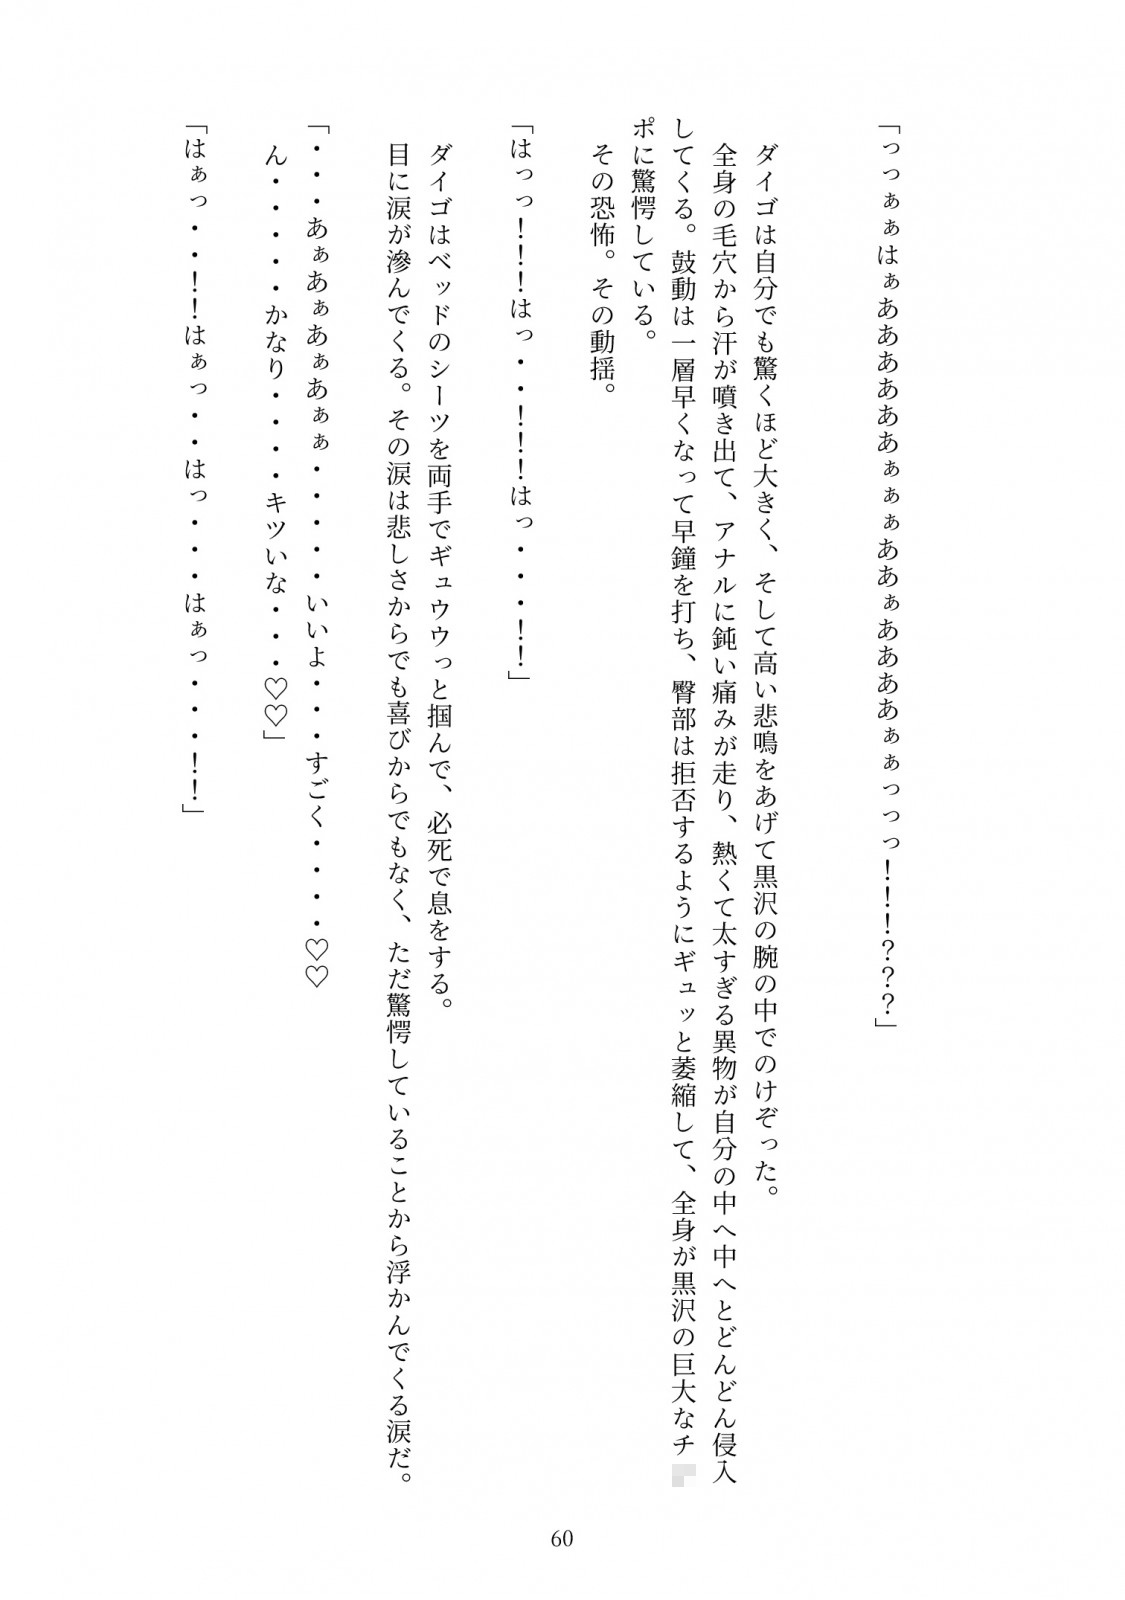 「っっぁぁはぁああああああぁぁぁああぁああああぁぁっっっ！！！？？？」
ダイゴは自分でも驚くほど大きく、そして高い悲鳴をあげて黒沢の腕の中でのけぞった。
全身の毛穴から汗が噴き出て、アナルに鈍い痛みが走り、熱くて太すぎる異物が自分の中へ中へとどんどん侵入
してくる。鼓動は一層早くなって早鐘を打ち、臀部は拒否するようにギュッと萎縮して、全身が黒沢の巨大なチ
ポに驚愕している。
その恐怖。その動揺。
「はっっ！！！はっ・・！！！はっ・・・！！」
ダイゴはベッドのシーツを両手でギュウウっと掴んで、必死で息をする。
目に涙が滲んでくる。その涙は悲しさからでも喜びからでもなく、ただ驚愕していることから浮かんでくる涙だ。
「・・・あぁあぁあぁあぁぁ・・・・・いいよ・・・すごく・・・・♡♡
ん・・・・・かなり・・・・キツいな・・・♡♡」
「はぁっ・・！！はぁっ・・・はっ・・・はぁっ・・・！！」
60